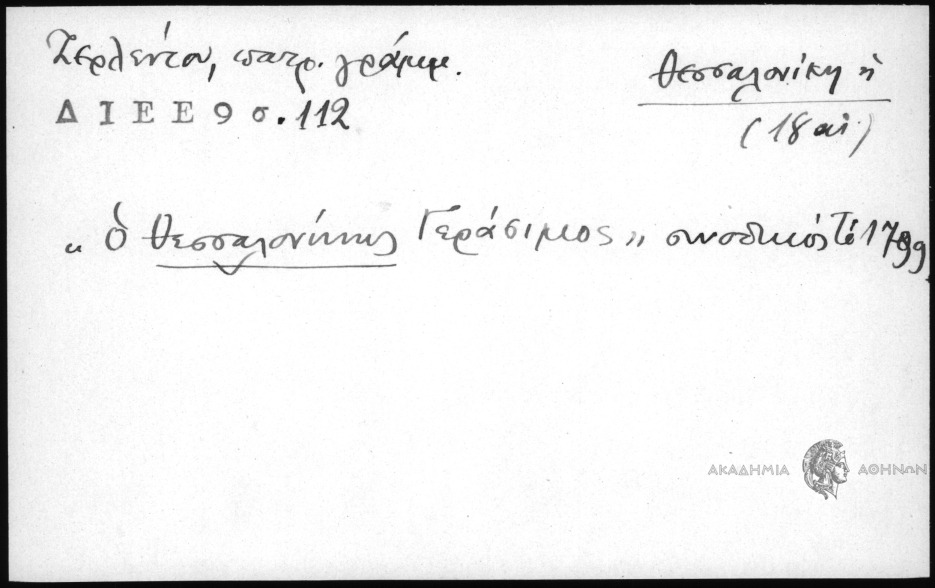 Ζερλέντου, πατρ. γράμμ.
Δ Ι Ε Ε 9 σ. 112
Θεσσαλονίκη ἡ
(18 αἰ.)
„ ὁ Θεσσαλονίκης Γεράσιμος „ συνοδικός τῷ
ΑΚΑΔΗΜΙΑ ΑΘΗΝΩΝ